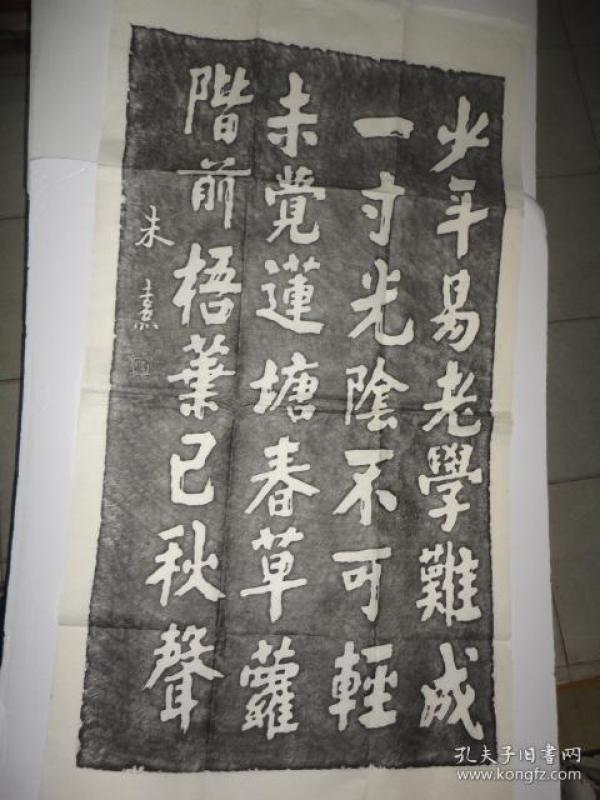 少年易老學難成
一寸光陰不可輕
未覺蓮塘春草蘿
階前梧葉已秋聲
朱熹
孔夫子旧書网
www.kongfz.com